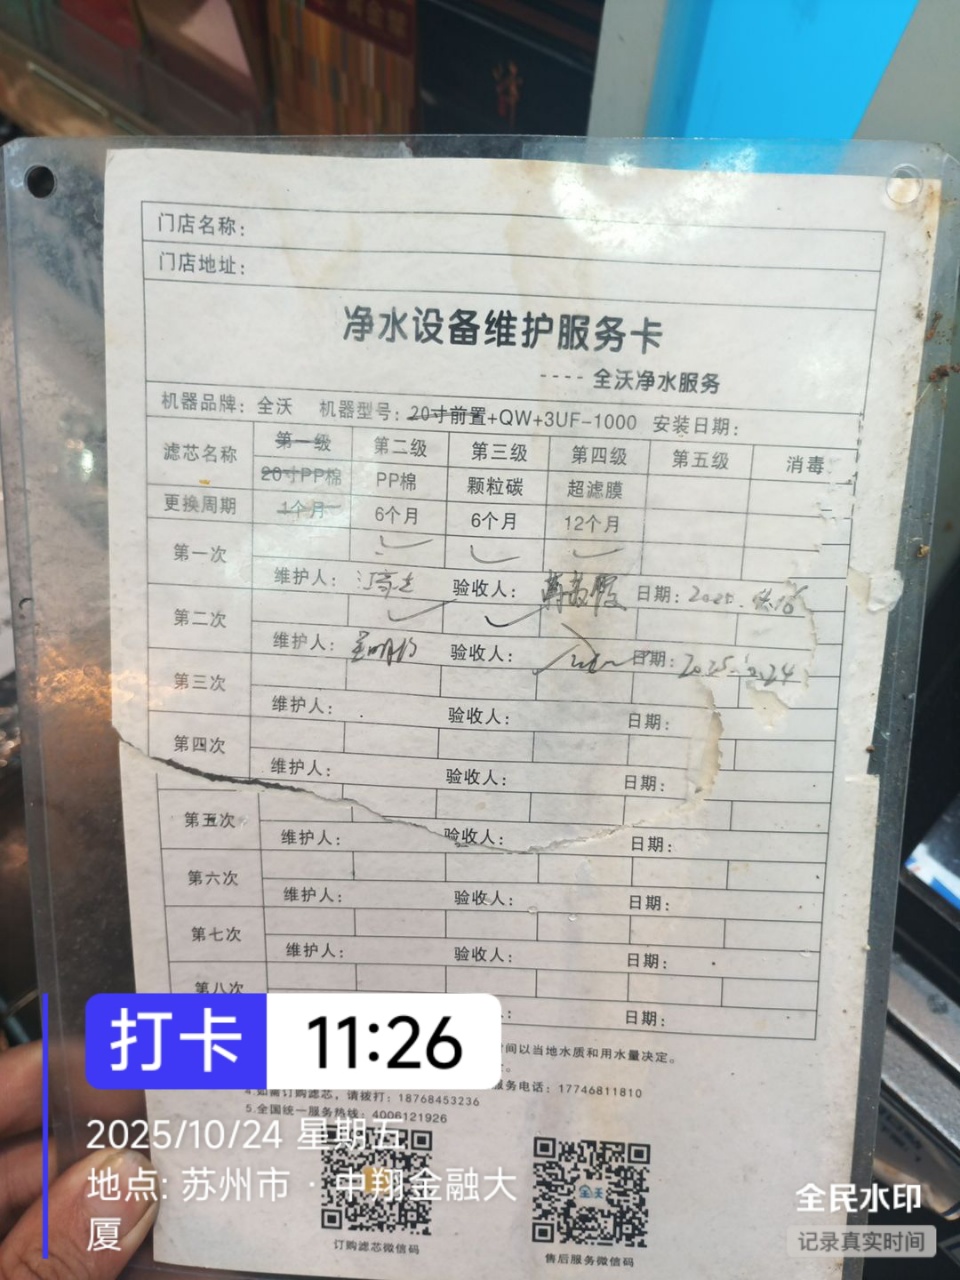 门店名称：
门店地址：
净水设备维护服务卡
---- 全沃净水服务
机器品牌：全沃 机器型号：20寸前置+QW+3UF-1000 安装日期：
滤芯名称 第一级 第二级 第三级 第四级 第五级 消毒
20寸PP棉 PP棉 颗粒碳 超滤膜
更换周期 1个月 6个月 6个月 12个月
第一次
维护人： 验收人： 日期：2025.
第二次
维护人： 验收人： 日期：2025.
第三次
维护人： 验收人： 日期：
第四次
维护人： 验收人： 日期：
第五次
维护人： 验收人： 日期：
第六次
维护人： 验收人： 日期：
第七次
维护人： 验收人： 日期：
第八次
人： 日期：
间以当地水质和用水量决定。
服务电话：17746811810
4.如需订购滤芯，请拨打：18768453236
5.全国统一服务热线：4006121926
订购滤芯微信码
售后服务微信码
全沃
打卡 11:26
2025/10/24 星期五
地点: 苏州市 · 中翔金融大
厦
全民水印
记录真实时间